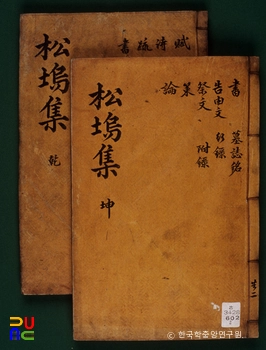 松塢集
乾
賦
詩
疏
書
松塢集
坤
書
告由文
祭文
策
論
墓誌銘
附錄
共二
3428
602
ⓒ한국학중앙연구원